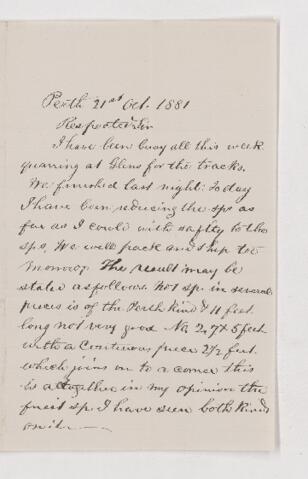 Perth 21st Oct. 1881
Respected Sir
I have been busy all this week
quarring at Glens for the tracks.
We finished last night: To day
I have been reducing the sps as
far as I could with safty to the
sps. We will pack and ship to
morrow. The result may be
stated as follows. No 1 sp. in several
pieces is of the Perth Kind & 11 feet
long not very good No. 2, 7 x 5 feet
with a Continuous piece 2 1/2 feet.
which joins on to a corner this
is altogether in my opinion the
finest sp. I have seen both Kinds
on it.